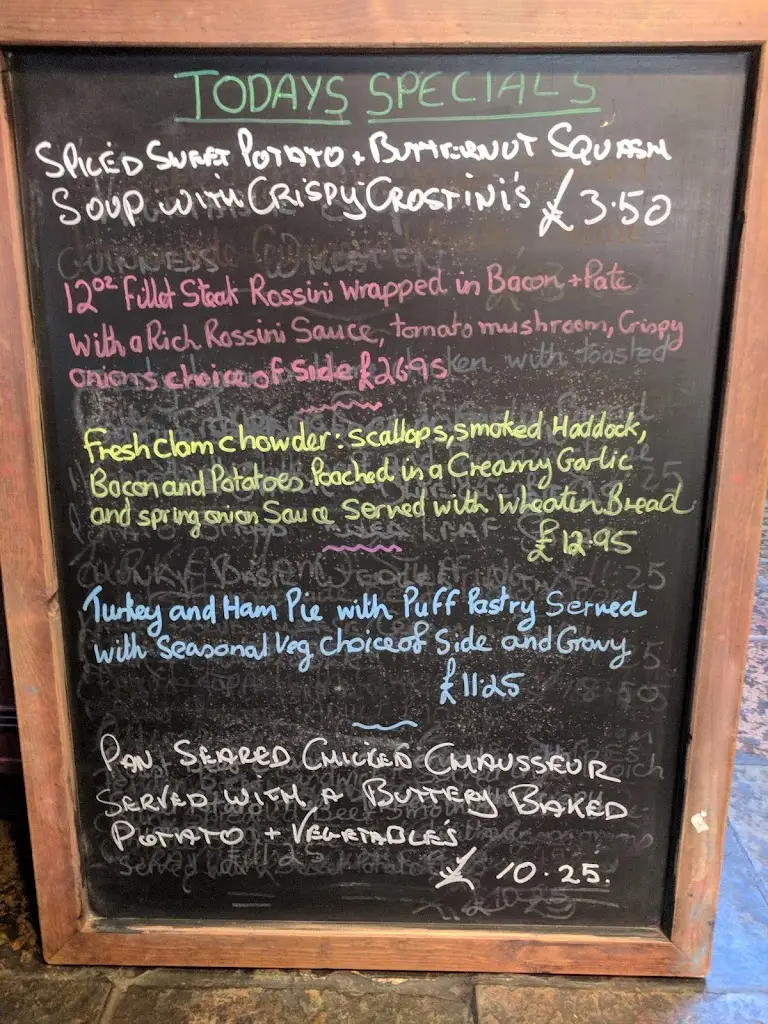 TODAYS SPECIALS
SPICED SWEET POTATO + BUTTERNUT SQUASH
SOUP WITH CRISPY CROSTINI'S £3.50
GUINNESS WHEATEN
12oz Fillet Steak Rossini wrapped in Bacon + Pate
with a Rich Rossini Sauce, tomato mushroom, Crispy
onions choice of side £26.95
with toasted
Fresh Clam chowder: scallops, smoked Haddock,
Bacon and Potatoes Poached in a Creamy Garlic
and spring onion Sauce served with Wheaten Bread
£12.95
Turkey and Ham Pie with Puff Pastry Served
with Seasonal Veg choice of Side and Gravy
£11.25
PAN SEARED CHICKEN CHAUSSEUR
SERVED WITH A BUTTERY BAKED
POTATO + VEGETABLE'S
£10.25.